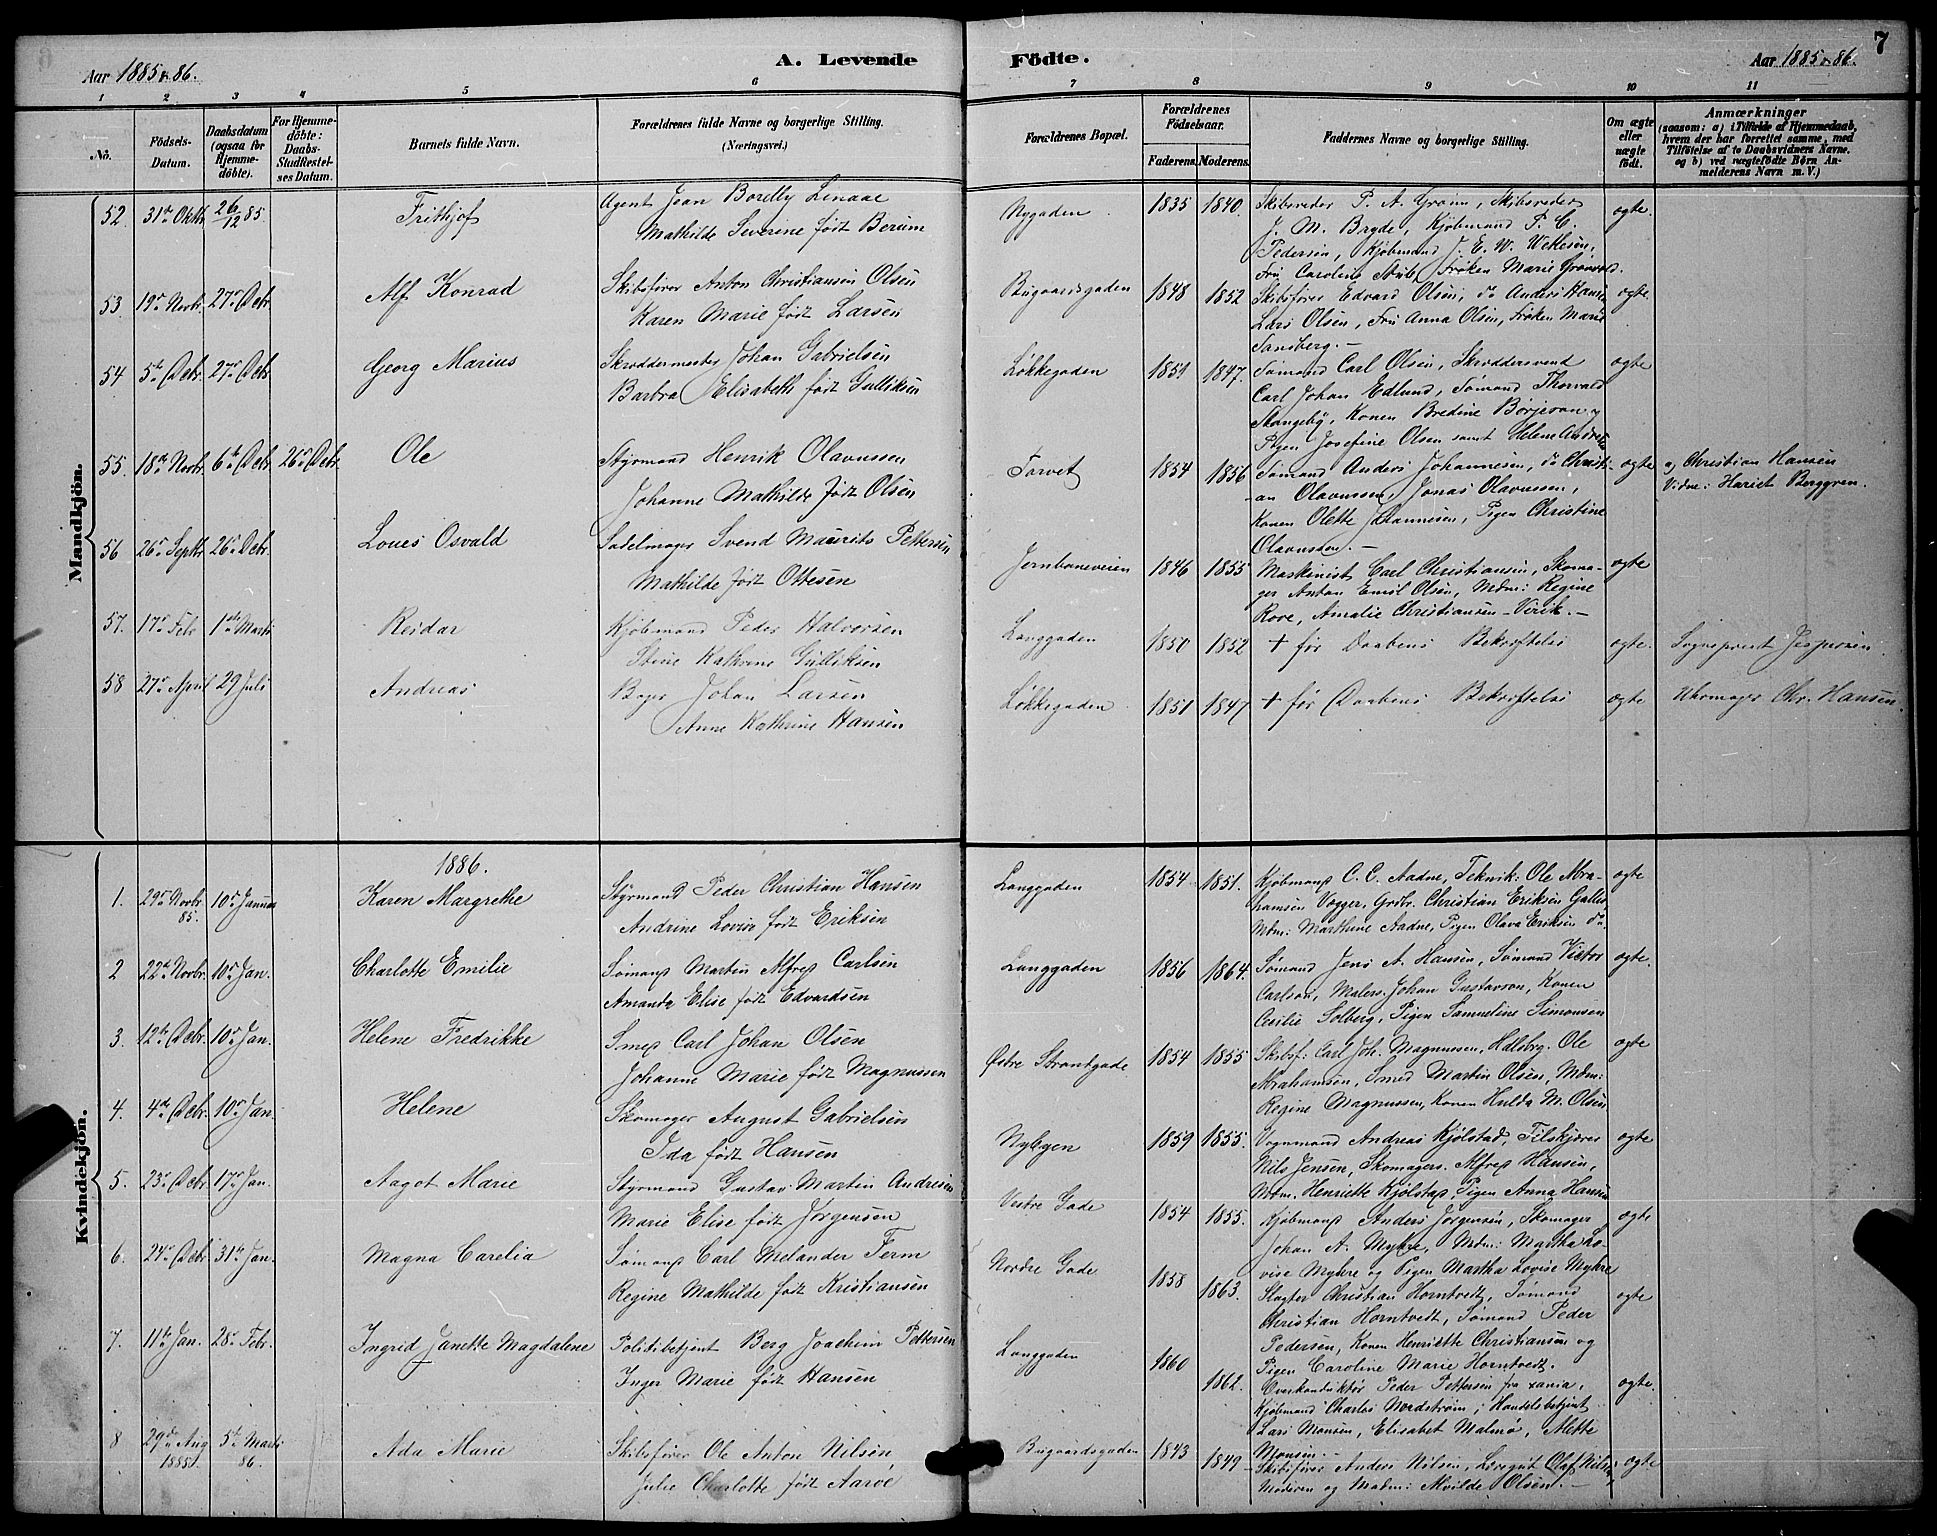 Aar 1885 & 86.
A. Levende
Födte.
Aar 1885 & 86.
7
1 2 3 4 5 6 7 8 9 10 11
No.
Födsels-Datum.
Daabsdatum (ogsaa for Hjemme-döbte).
For Hjemme-döbte: Daabs-Stadfæstel-ses Datum.
Barnets fulde Navn.
Forældrenes fulde Navne og borgerlige Stilling.
(Næringsvei.)
Forældrenes Bopæl.
Forældrenes Födselsaar.
Faderens. Moderens.
Faddernes Navne og borgerlige Stilling.
Om ægte eller uægte født.
Anmærkninger
(saasom: a) i Tilfælde af Hjemmedaab, hvem der har forrettet samme, med Tilföielse af to Daabsvidners Navne. og b) ved uægtefödte Börn An-melderens Navn m. V.)
Mandkjön.
52 31te Oktbr 26/12 85. Frithjof
Agent Jean Borelly Linaae
Mathilde Severine født Berum
Nygaden 1835 1840.
Skibsreder P. A. Grønn, Skibsreder
J. M. Bryde, Kjøbmand P. C.
Pedersen, Kjøbmand J. E. W. Wettesen,
Fru Caroline Stub, Frøken Marie Grønvold.
ægte.
53 19de Novbr. 27de Debr. Alf Konrad
Skibsfører Anton Christiansen Olsen
Karen Marie født Larsen
Bugaardsgaden 1848 1852
Skibsfører Edvard Olsen, do Anders Hansen
Lars Olsen, Fru Anna Olsen, Frøken Marie
Sansberg. —
ægte.
54 5te Debr. 27de Debr Georg Marius
Skræddermester Johan Gabrielsen
Barbra Elisabeth født Gulliksen
Løkkegaden 1851 1847.
Sømand Carl Olsen, Skræddersvend
Carl Johan Edlund, Sømand Thorvald
Skangeby, Konen Bredine Børjeson,
Pigen Josefine Olsen samt Helene Andrea
ægte
55. 18de Novbr. 6te Debr 26de Debr. Ole
Styrmand Henrik Olavussen
Johanne Mathilde født Olsen
Torvet 1854 1856
Sømand Anders Johannesen, do Christi-
an Olavussen, Jonas Olavussen,
Konen Olette Johannesen, Pigen Christine
Olavussen. —
ægte
a) Christian Hansen
Vidne: Hariet Berggren.
56 26de Septbr 26de Debr. Loues Osvald
Sadelmager Svend Maurits Pettersen
Mathilde født Ottesen
Jernbaneveien 1846 1855
Maskinist Carl Christiansen, Skoma-
ger Anton Emil Olsen, Mdm: Regine
Rove, Amalie Christiansen - Virik. —
ægte
57. 17de Febr 1ste Marts Reidar
Kjøbmand Peder Halvorsen
Stine Kathrine Gulliksen
Langgaden 1850 1852 + før Daabens Bekræftelse ægte. Sogneprest Jespersen.
58 27de April 29 Juli Andreas
Bager Johan Larsen
Anne Kathrine Hansen
Løkkegaden. 1851 1847 + før Daabens Bekræftelse ægte Uhrmager Chr. Hansen.
Kvindekjön.
1886.
1. 29de Novbr. 85. 10de Januar Karen Margrethe
Styrmand Peder Christian Hansen
Andrine Lovise født Eriksen
Langgaden 1854 1851.
Kjøbmand C. C. Aadne, Teknik: Ole Abra-
hamsen Vegger, Grdbr. Christian Eriksen Gallis
Mdm: Marthine Aadne, Pigen Olava Eriksen do
ægte
2 22de Novbr. 10de Jan. Charlotte Emilie
Sømand Martin Alfred Carlsen
Amanda Elise født Edvardsen
Langgaden 1856 1864.
Sømand Jens A. Hansen, Sømand Victor
Carlson, Malers. Johan Gustavson, Konen
Cecilie Solberg, Pigen Samueline Simonsen
ægte.
3. 12te Debr. 10de Jan. Helene Fredrikke
Smed Carl Johan Olsen
Johanne Marie født Magnussen
Østre Strandgade 1854 1855
Skibsf: Carl Joh. Magnussen, Halsbrg. Ole
Abrahamsen, Smed Martin Olsen, Mdm:
Regine Magnussen, Konen Hulda M. Olsen
ægte
4. 4de Debr. 10de Jan. Helene
Skomager August Gabrielsen
Ida født Hansen
Nybyen 1859 1855.
Vognmand Andreas Kjølstad, Tilskjærer
Nils Jensen, Skomagers. Alfred Hansen,
Mdm. Henriette Kjølstad, Pigen Anna Hansen
ægte
5. 23de Debr. 17de Jan. Aagot Marie
Styrmand Gustav Martin Andresen
Marie Elise født Jørgensen
Vestre Gade 1854 1855.
Kjøbmand Anders Jørgensen, Skomager
Johan A. Myhre, Mdm: Martha Lo-
vise Myhre og Pigen Martha Lovise Myhre
ægte
6. 24de Debr. 31te Jan. Magna Carelia
Sømand Carl Melander Term
Regine Mathilde født Kristiansen
Nordre Gade 1858 1863.
Slagter Christian Horntvedt, Sømand
Christian Horntvedt, Sømand Peder
Pedersen, Konen Henriette Christiansen og
Pigen Caroline Marie Horntvedt.
ægte
7. 11te Jan. 28de Febr. Ingrid Janette Magdalene
Politibetjent Berg Joachim Pettersen
Inger Marie født Hansen
Langgaden 1860 1862.
Overkonduktør Peder Pettersen fra xania,
Kjøbmand Charles Nordstrøm, Handelsbetjent
Lars Monsen, Elisabet Malmø, Alette
Monsen. —
ægte.
8 29de Aug 1885. 5te Marts 86. Ada Marie
Skibsfører Ole Anton Nilsen,
Julie Charlotte født Aarve
Bugaardsgaden 1843 1849
Skibsfører Anders Nilsen, Løregut Olaf Nilsen,
Moderen og Madm: Alvilde Olsen. —
ægte